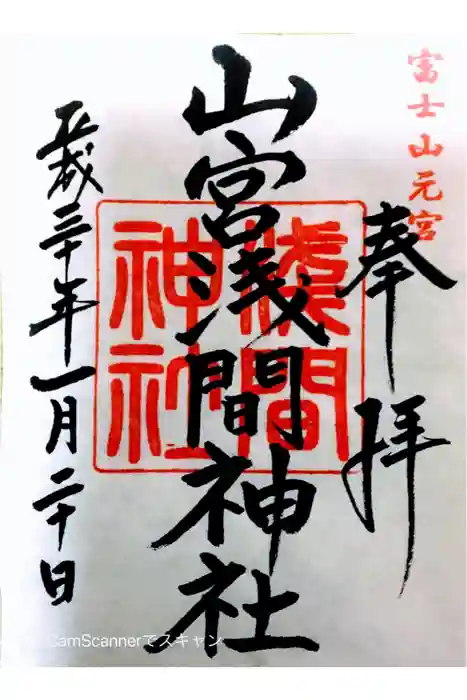 富士山元宮
奉拝
山宮浅間神社
淺間
神社
平成三十年一月二十日
CamScannerでスキャン